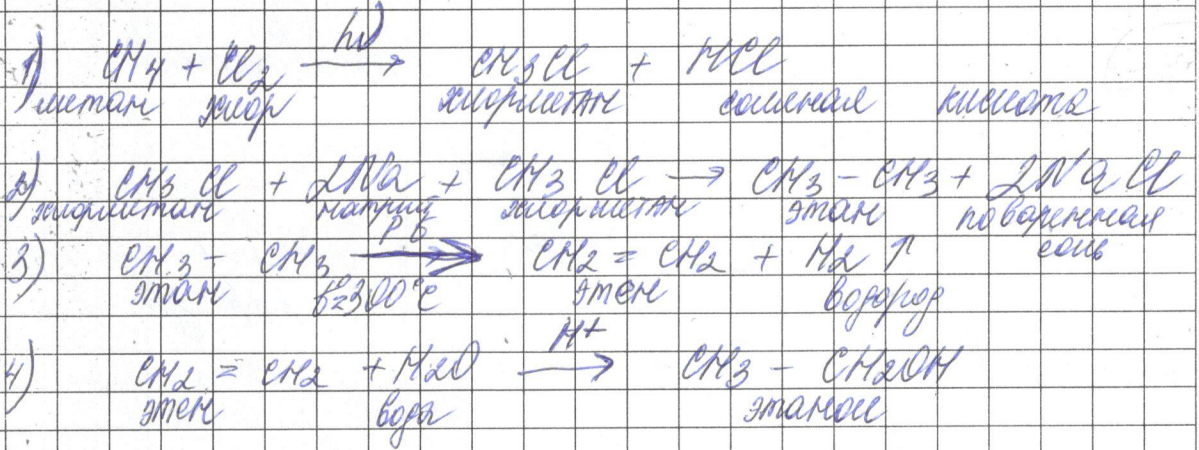 hν
1) CH4 + Cl2 → CH3Cl + HCl
метан хлор хлорметан соляная кислота
2) CH3 Cl + 2Na + CH3 Cl → CH3 – CH3 + 2NaCl
хлорметан натрий хлорметан этан поваренная
соль
3) CH3 – CH3 → CH2 = CH2 + H2 ↑
этан t°=300°C этен водород
H+
4) CH2 = CH2 + H2O → CH3 – CH2OH
этен вода этанол